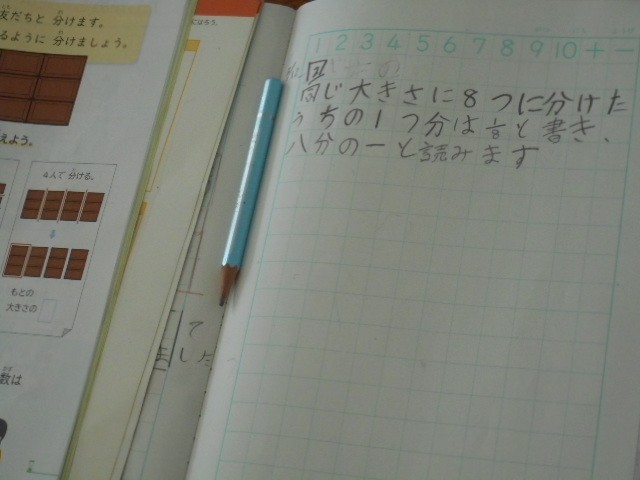 友だちと 分けます。
るように 分けましょう。
えよう。
4人で 分ける。
もとの
大きさの
数は
1 2 3 4 5 6 7 8 9 10 + −
同じ大きさに8つに分けた
うちの1つ分は1/8と書き、
八分の一と読みます
て
ました